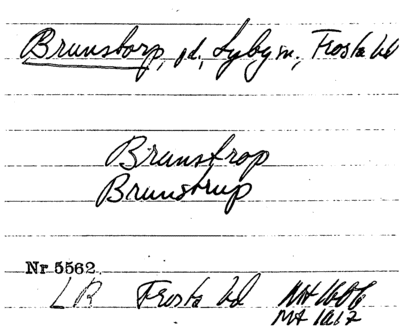 Brunstorp, gd, Lyby sn, Frosta hd
Brunstrop
Brunstrup
Nr 5562
LR Frosta hd MH 1606
MA 1617